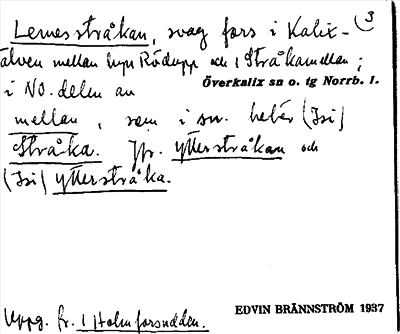 Lernesstråkan, svag fors i Kalix- 3
älven mellan byn Rödupp och 1 Stråkamellan;
Överkalix sn o. tg Norrb. l.
i NO. delen av
mellan, som i sn. heter (Isi)
Stråka. Jfr. ytterstråkan och
(Isi) ytterstråka.
Uppg. fr. 1 Holmforsudden.
EDVIN BRÄNNSTRÖM 1937